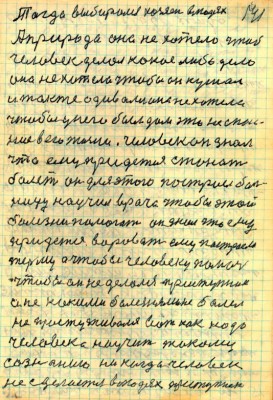 Тогда выбирался хозяин в людях
А природа она не хотела чтоб
человек делал какое либо дело
она не хотела чтобы он кушал
и также одевался она не хотела
чтобы у него был дом это не спасение
в его жизни. Человек он знал
что ему придется стонат
болет он для этого построил больницу
научил врача чтобы этой
болезни помогат он знал что ему
придется вороват ему построел
тюрму а чтобы человеку
чтобы он не делался преступником
а не какими болезнями не болел
не простуживался вот как надо
человека научит такому
сознанию никогда человек
не сделается в людях преступник